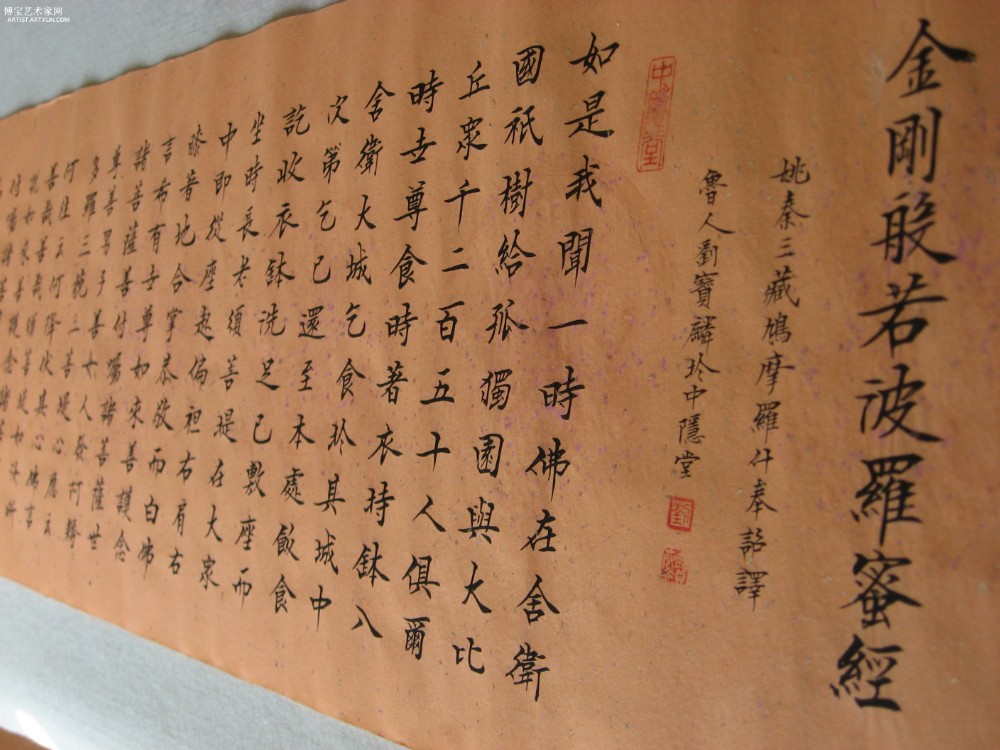 博宝艺术家网
ARTIST.ARTXUN.COM
金剛般若波羅蜜經
姚秦三藏鳩摩羅什奉詔譯
魯人劉寶麟扵中隱堂
中隱堂
劉
如是我聞一時佛在舍衛
國祇樹給孤獨園與大比
丘眾千二百五十人俱爾
時世尊食時著衣持鉢入
舍衛大城乞食扵其城中
次第乞已還至本處飯食
訖收衣鉢洗足已敷座而
坐時長老須菩提在大眾
中即從座起偏袒右肩右
膝著地合掌恭敬而白佛
言希有世尊如來善護念
諸菩薩善付囑諸菩薩世
尊善男子善女人發阿耨
多羅三藐三菩提心應云
何住云何降伏其心佛言
善哉善哉須菩提如汝所
說如來善護念諸菩
付囑諸菩